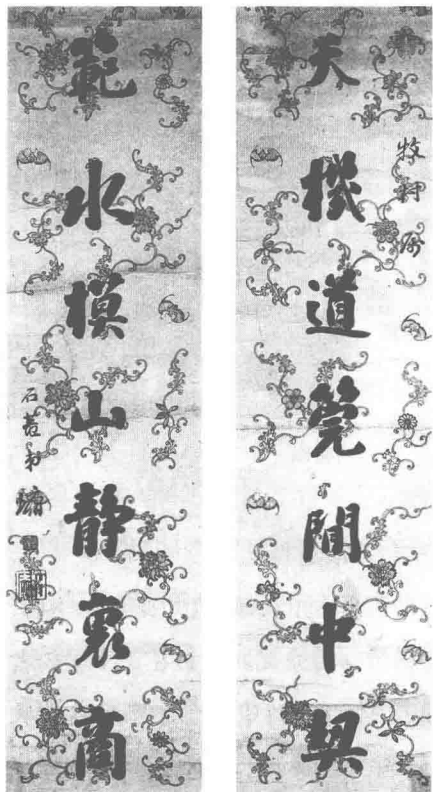 天機道筦閒中契
牧村
範水模山靜裏商
石菴弟
墉